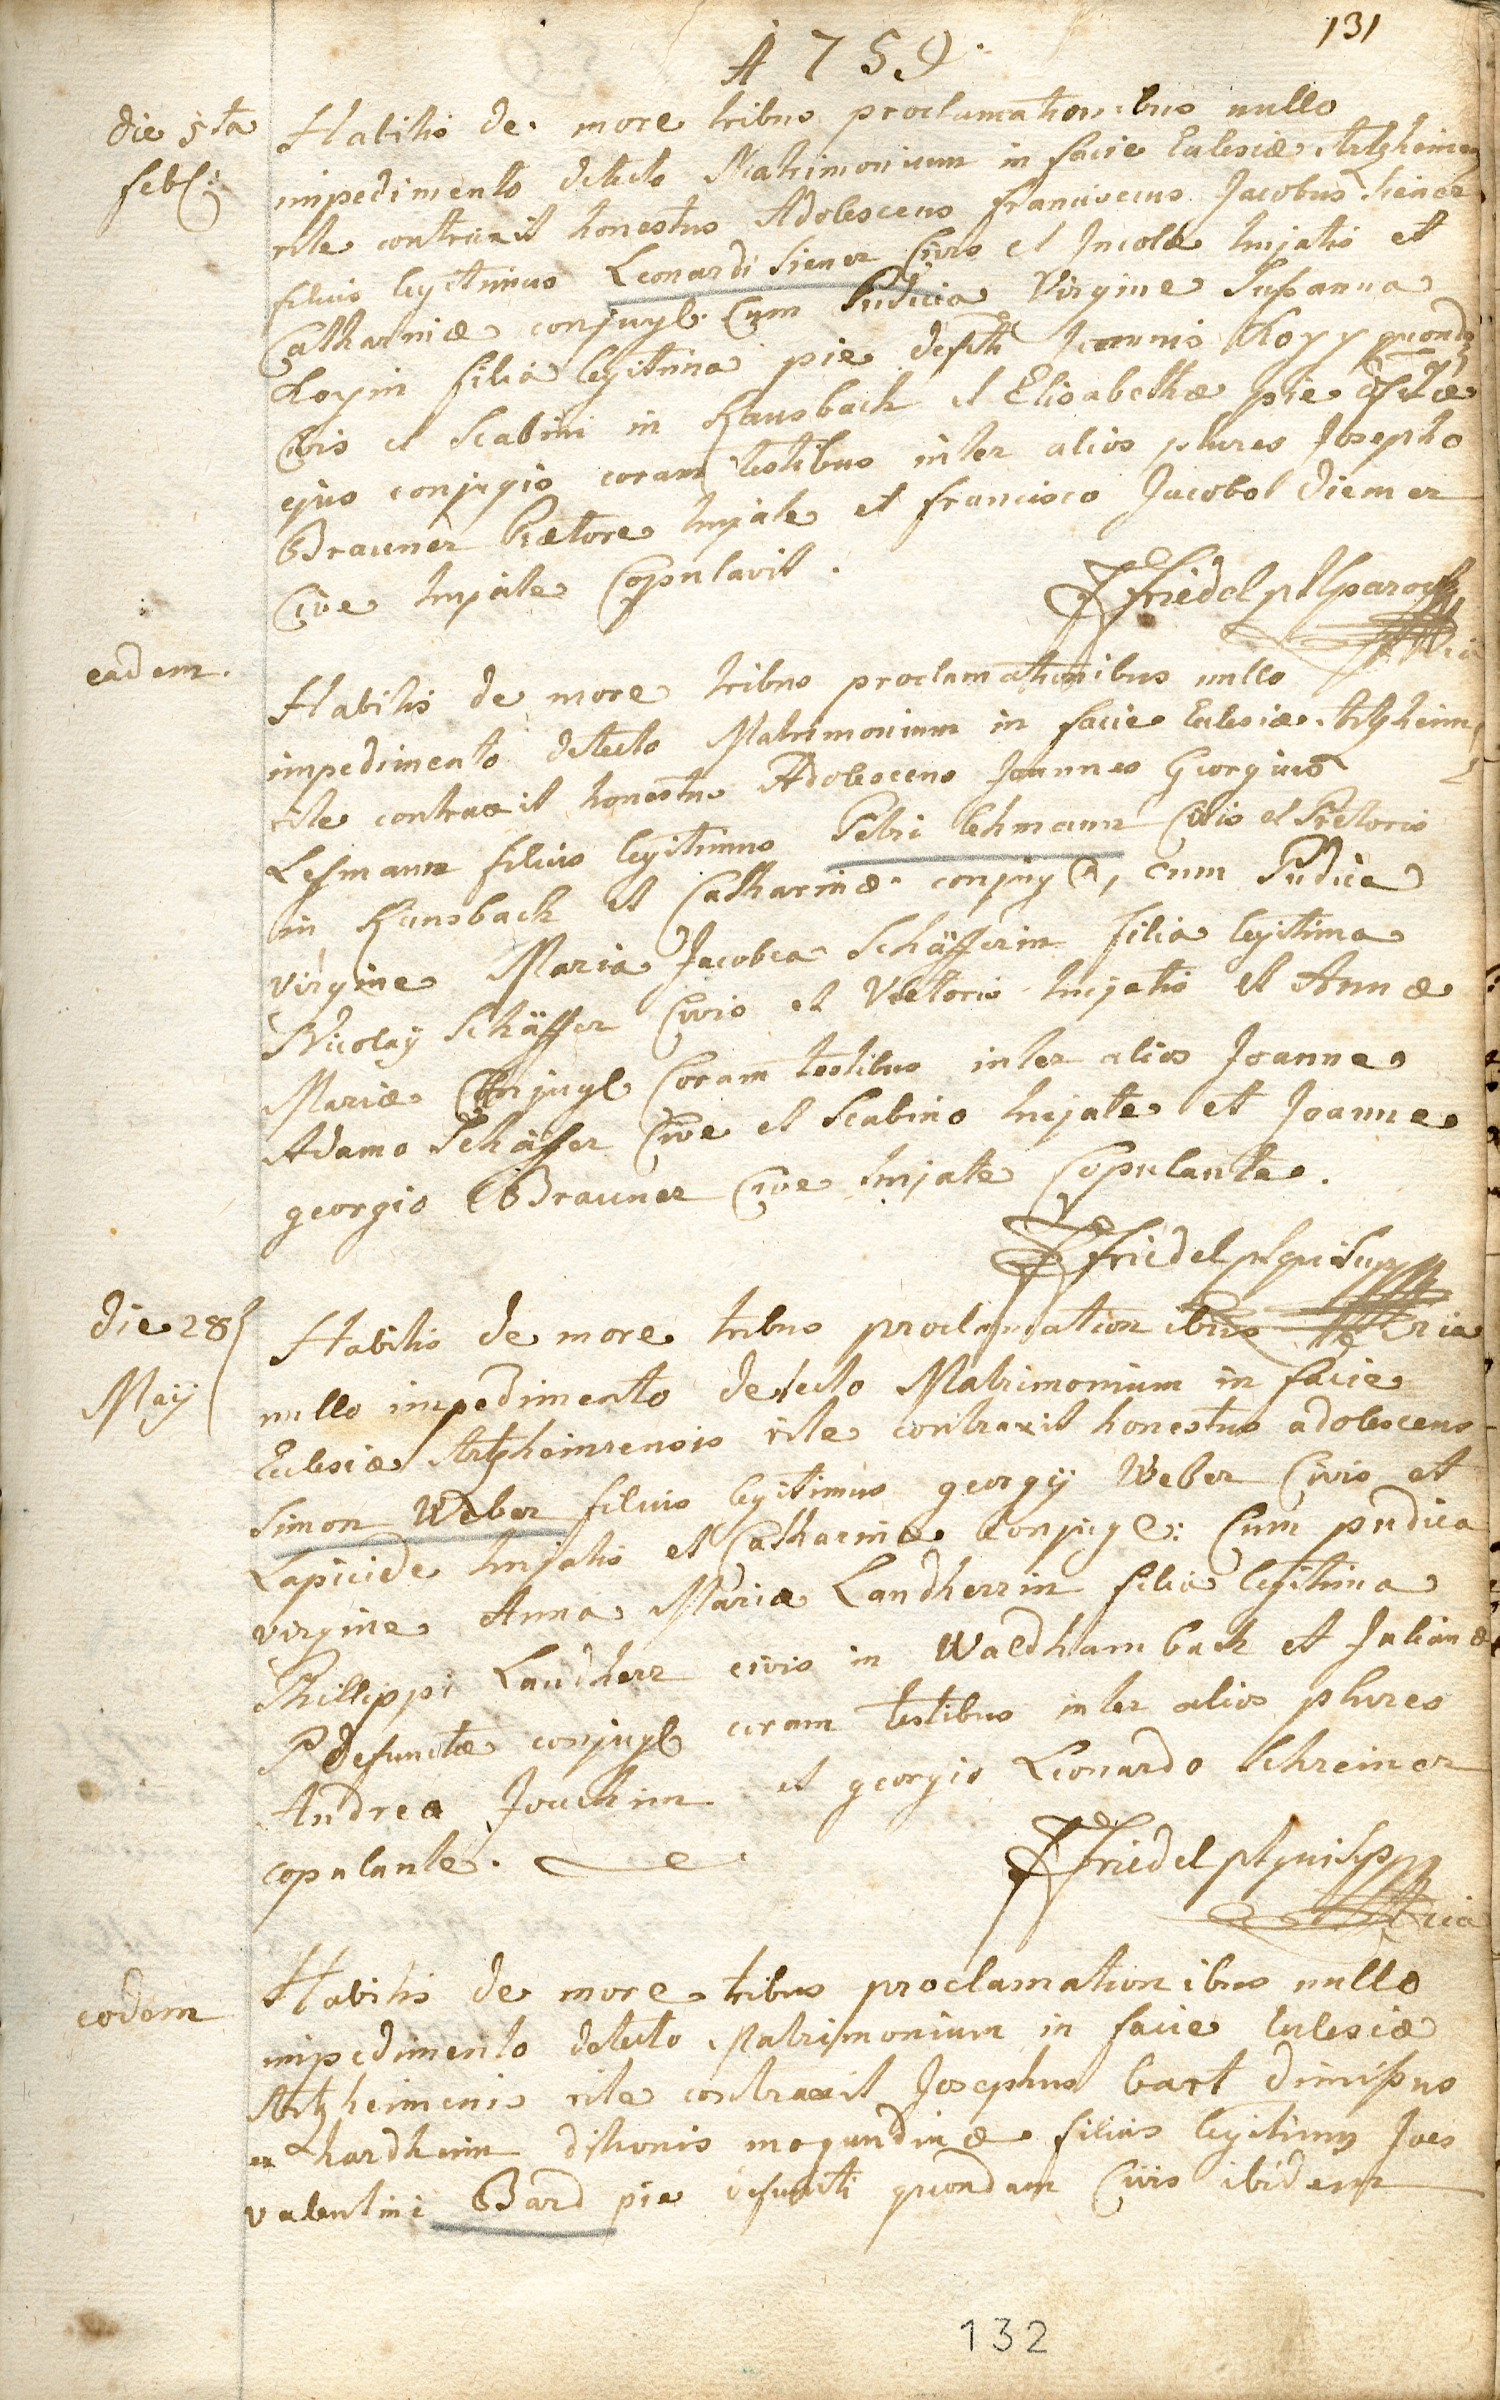 131
A 1759.
die 5ta
feb:
Habitis de more tribus proclamationibus nullo
impedimento detecto Matrimonium in facie Eclesiæ Artzheimen
rite contraxit honestus Adolescens franciscus Jacobus Siener
filius legitimus Leonardi Siener Civis et Incolæ hujatis et
Catharinæ conjugl. Cum Pudica Virgine Sußanna
Koyin filia legitima pie defcti Joannis Koyy quond
Civis et Scabini in Ransbach et Elisabethæ pie defctæ
ejus conjugis coram testibus inter alios plures Josepho
Brauner Prætore hujate et francisco Jacobo Diemer
Cive hujate Copulavit.
JFriedel pl paroch
eadem.
Habitis de more tribus proclamationibus nullo
impedimento detecto Matrimonium in facie Eclesiæ Artzheim
rite contraxit honestus Adolescens Joannes Georgius
Lehmann filius legitimus Petri lehmann Civis et Prætoris
in Ransbach et Catharinæ conjug, cum Pudica
virgine Maria Jacobea Schäfferin filia legitima
Nicolaÿ Schäffer Civis et Vietoris hujatis et Annæ
Mariæ Conjugl Coram testibus inter alios Joanne
Adamo Schäffer Cive et Scabino hujate et Joanne
georgio Brauner Cive hujate Copulante.
JFriedel
die 28
Maÿ
Habitis de more tribus proclamationibus
nullo impedimento detecto Matrimonium in facie
Eclesiæ Artzheimensis rite contraxit honestus adolescens
Simon Weber filius legitimus georgÿ Weber Civis et
Lapicide hujatis et Catharinæ Conjuge: Cum pudica
virgine Anna Maria Landherrin filia legitima
Phillippi Landherr civis in Waldhambach et Julianæ
P defunctæ conjugl coram testibus inter alios plures
Andrea Joachim et georgio Leonardo Schreiner
copulante.
JFriedel
eodem
Habitis de more tribus proclamationibus nullo
impedimento detecto Matrimonium in facie Eclesiæ
Artzheimenis rite contraxit Josephus bart dimißus
ex hardheim ditionis mogundinæ filius legitimus Joes
valentini Bard pie defuncti quondam Civis ibidem
132